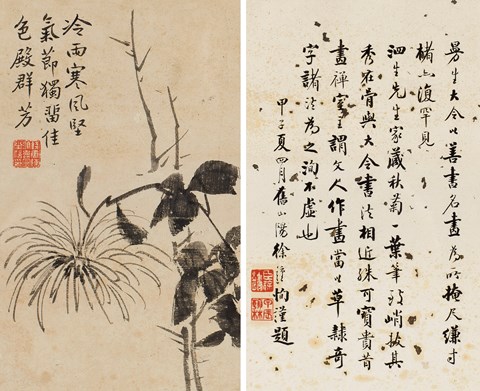 冷雨寒風堅
氣節獨留佳
色殿群芳
曇生大令以善書名畫為所掩尺縑寸
楮亦復罕見
泗生先生家藏秋菊一葉筆致峭拔其
秀在骨與大令書法相近殊可寶貴昔
畫禪室主謂文人作畫當以草隸奇
字諸法為之洵不虛也
甲子夏四月舊山陽徐鍾恂謹題